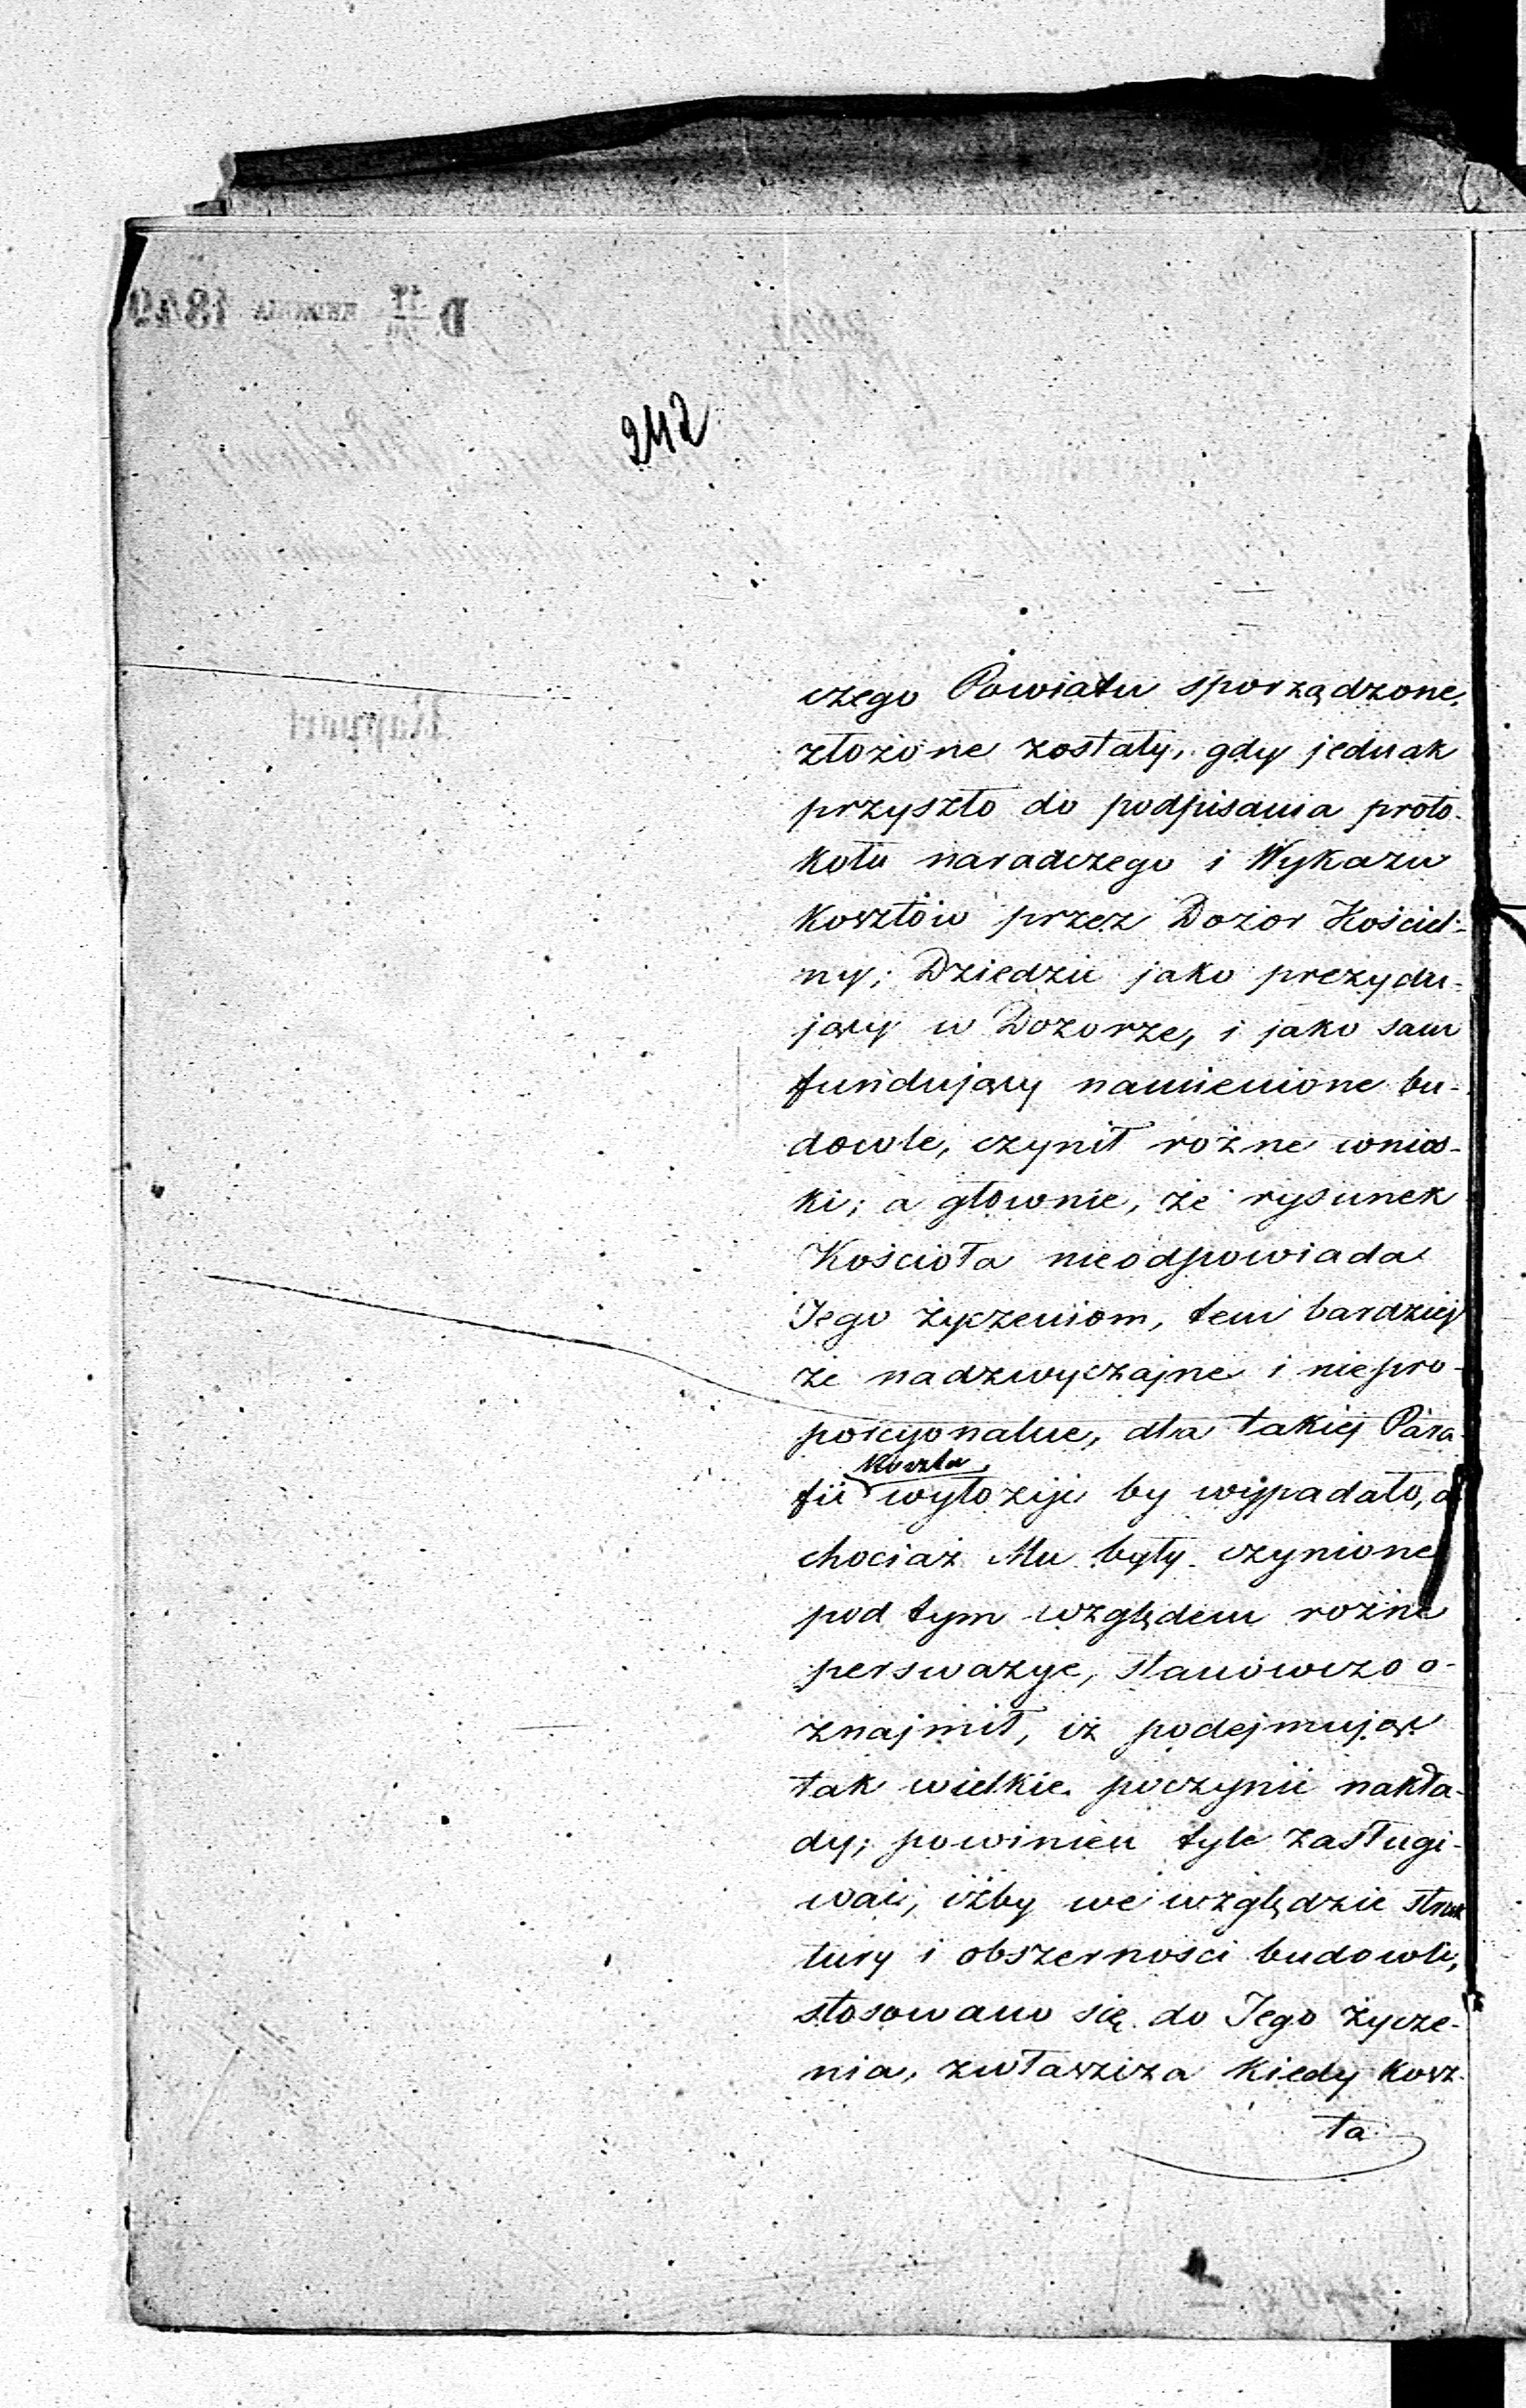 242
czego Powiatu sporządzone,
złożone zostały, gdy jednak
przyszło do podpisania proto-
kołu naradczego i Wykazu
kosztów przez Dozor Kościel-
ny; Dziedzic jako prezydu-
jący w Dozorze, i jako sam
fundujący namienione bu-
dowle, czynił rożne wnios-
ki; a głownie, że rysunek
Kościoła nieodpowiada
Jego życzeniom, tem bardziej
że nadzwyczajne i niepro-
porcyonalne, dla takiej Para-
koszta
fii wyłożyć by wypadało, a
chociaż Mu były czynione
pod tym względem rożne
perswazye, stanowczo o-
znajmił, iż podejmując
tak wielkie poczynić nakła-
dy; powinien tyle zasługi-
wać, iżby we względzie struk
tury i obszerności budowli,
stosowano się do Jego życze-
nia, zwłaszcza kiedy kosz-
ta